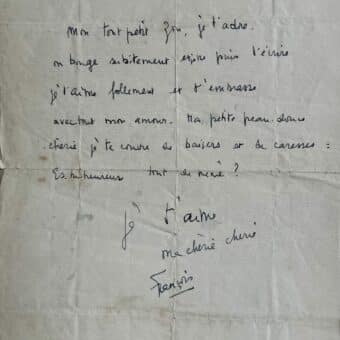 Mon tout petit Zou, je t'adore.
on bouge subitement enfin puis t'écrire
je t'aime follement et t'embrasse
avec tout mon amour. Ma petite peau douce
chérie je te couvre de baisers et de caresses :
Es tu heureux tout de même ?
Je t'aime
ma chérie chérie
François